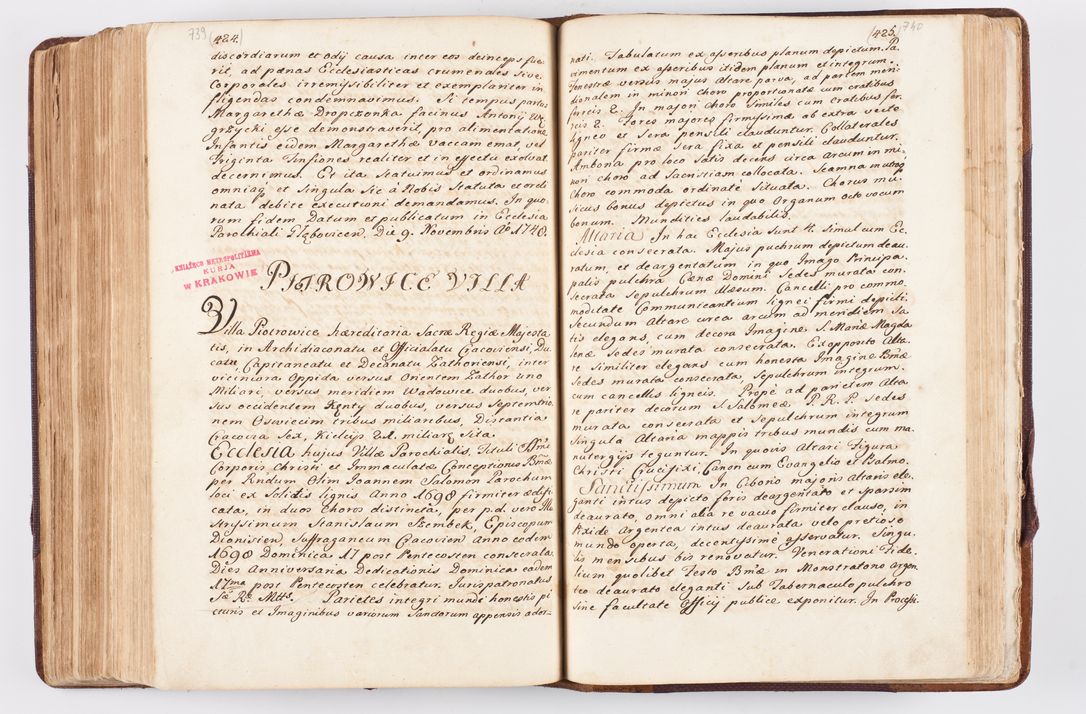 739 (424.)
discordiarum et odij causa inter eos deinceps fue
rit, ad pænas Ecclesiasticas crumenales sive
Corporales irremissibiliter et exemplariter in
fligendas condemnavimus. Si tempus partus
Margarethæ Dropczonka facinus Antonij Wę
grzycki esse demonstraverit, pro alimentatione
Infantis eidem Margarethæ Vaccam emat, vel
Triginta Tinfiones realiter et in effectu exolvat
decernimus. Et ita statuimus et ordinamus
omniaq et singula sic à Nobis statuta et ordi
nata debitæ executioni demandamus. In quo
rum fidem Datum et publicatum in Ecclesia
Parochiali Głębovicen. Die 9. Novembris Aº 1748.
KSIĄŻĘCO METROPOLITALNA
KURJA
W KRAKOWIE
PIOTROWICE VILLA
Villa Piotrowice hæreditaria Sacræ Regiæ Majesta
tis, in Archidiaconatu et Officialatu Cracoviensi, Du
catu, Capitaneatu et Decanatu Zathoriensi, inter
viciniora Oppida versus Orientem Zathor uno
Miliari, versus meridiem Wadowice duobus, ver
sus occidentem Kęnty duobus, versus Septemtrio
nem Oswiecim tribus miliaribus, Distantia
Cracovia Sex, Kielcijs 21. miliarę sita.
Ecclesia hujus Villæ Parochialis, Tituli SSmi
Corporis Christi et Immaculatæ Conceptionis Bmæ
per Rndum Olim Joannem Salomon Parochum
loci ex Solidis lignis Anno 1698 firmiter ædifi
cata, in duos Choros distincta, per p.d. vero Illu
strissimum Stanislaum Szembek, Episcopum
Dionisien, Suffraganeum Cracovien Anno eodem
1698 Dominica 17 post Pentecosten consecrata.
Dies Anniversaria Dedicationis Dominica eadem
17ma post Pentecosten celebratur. Juris patronatus
Sæ Ræ Mttis. Parietes integri mundi honestis pi
cturis et Imaginibus variorum Sanctorum appensis ador-
(425.) 740
nati. Tabulatum ex asseribus planum depictum. Pa
vimentum ex asseribus itidem planum et integrum.
Fenestræ versus majus Altare parva, ad partem meri
dionalem in minori choro proportionatæ cum cratibus
ferreis 2. In majori choro similes cum cratibus fer
reis 2. Fores majores firmissimæ ab extra vecte
ligneo et sera pensili clauduntur. Collaterales
pariter firmæ sera fixa et pensili clauduntur.
Ambona pro loco satis decens circa arcum in mi
nori choro ad Sacristiam collocata. Scamna in utroq
Choro commoda ordinate situata. Chorus mu
sicus bonus depictus in quo Organum octo vocum
bonum. Mundities laudabilis.
Altaria In hac Ecclesia sunt 4. simul cum Ec
clesia consecrata. Majus puchrum depictum deau
ratum, et deargentatum in quo Imago Principa
palis pulchra Cænæ Domini sedes murata con
secrata Sepulchrum illæsum. Cancelli pro commo
moditate Communicantium lignei firmi depicti.
Secundum Altare circa arcum ad meridiem sa
tis elegans, cum decora Imagine S. Mariæ Magda
lenæ sedes murata consecrata. Ex opposito Alta
re similiter elegans cum honesta Imagine Bmæ
sedes murata consecrata, sepulchrum integrum.
cum cancellis ligneis. Propè ad parietem Alta
re pariter decorum S. Salomeæ P. R. P. sedes
murata consecrata et sepulchrum integrum
Singula Altaria mappis tribus mundis cum ma
nutergijs teguntur. In quovis Altari Figura
Christi Crucifixi, Canon cum Evangelio et Psalmo.
Sanctissimum In Ciborio majoris Altaris ele
ganti intus depicto foris deargentato et sparsim
deaurato, omni alia re vacuo firmiter clauso, in
Pixide Argentea intus deaurata velo pretioso
mundo operta, decentissimè asservatur. Singu
lis mensibus bis renovatur. Venerationi Fide
lium quolibet Festo Bmæ in Monstratorio argen
teo deaurato eleganti sub Tabernaculo pulchro
sine facultate Officij publicè exponitur. In Processi